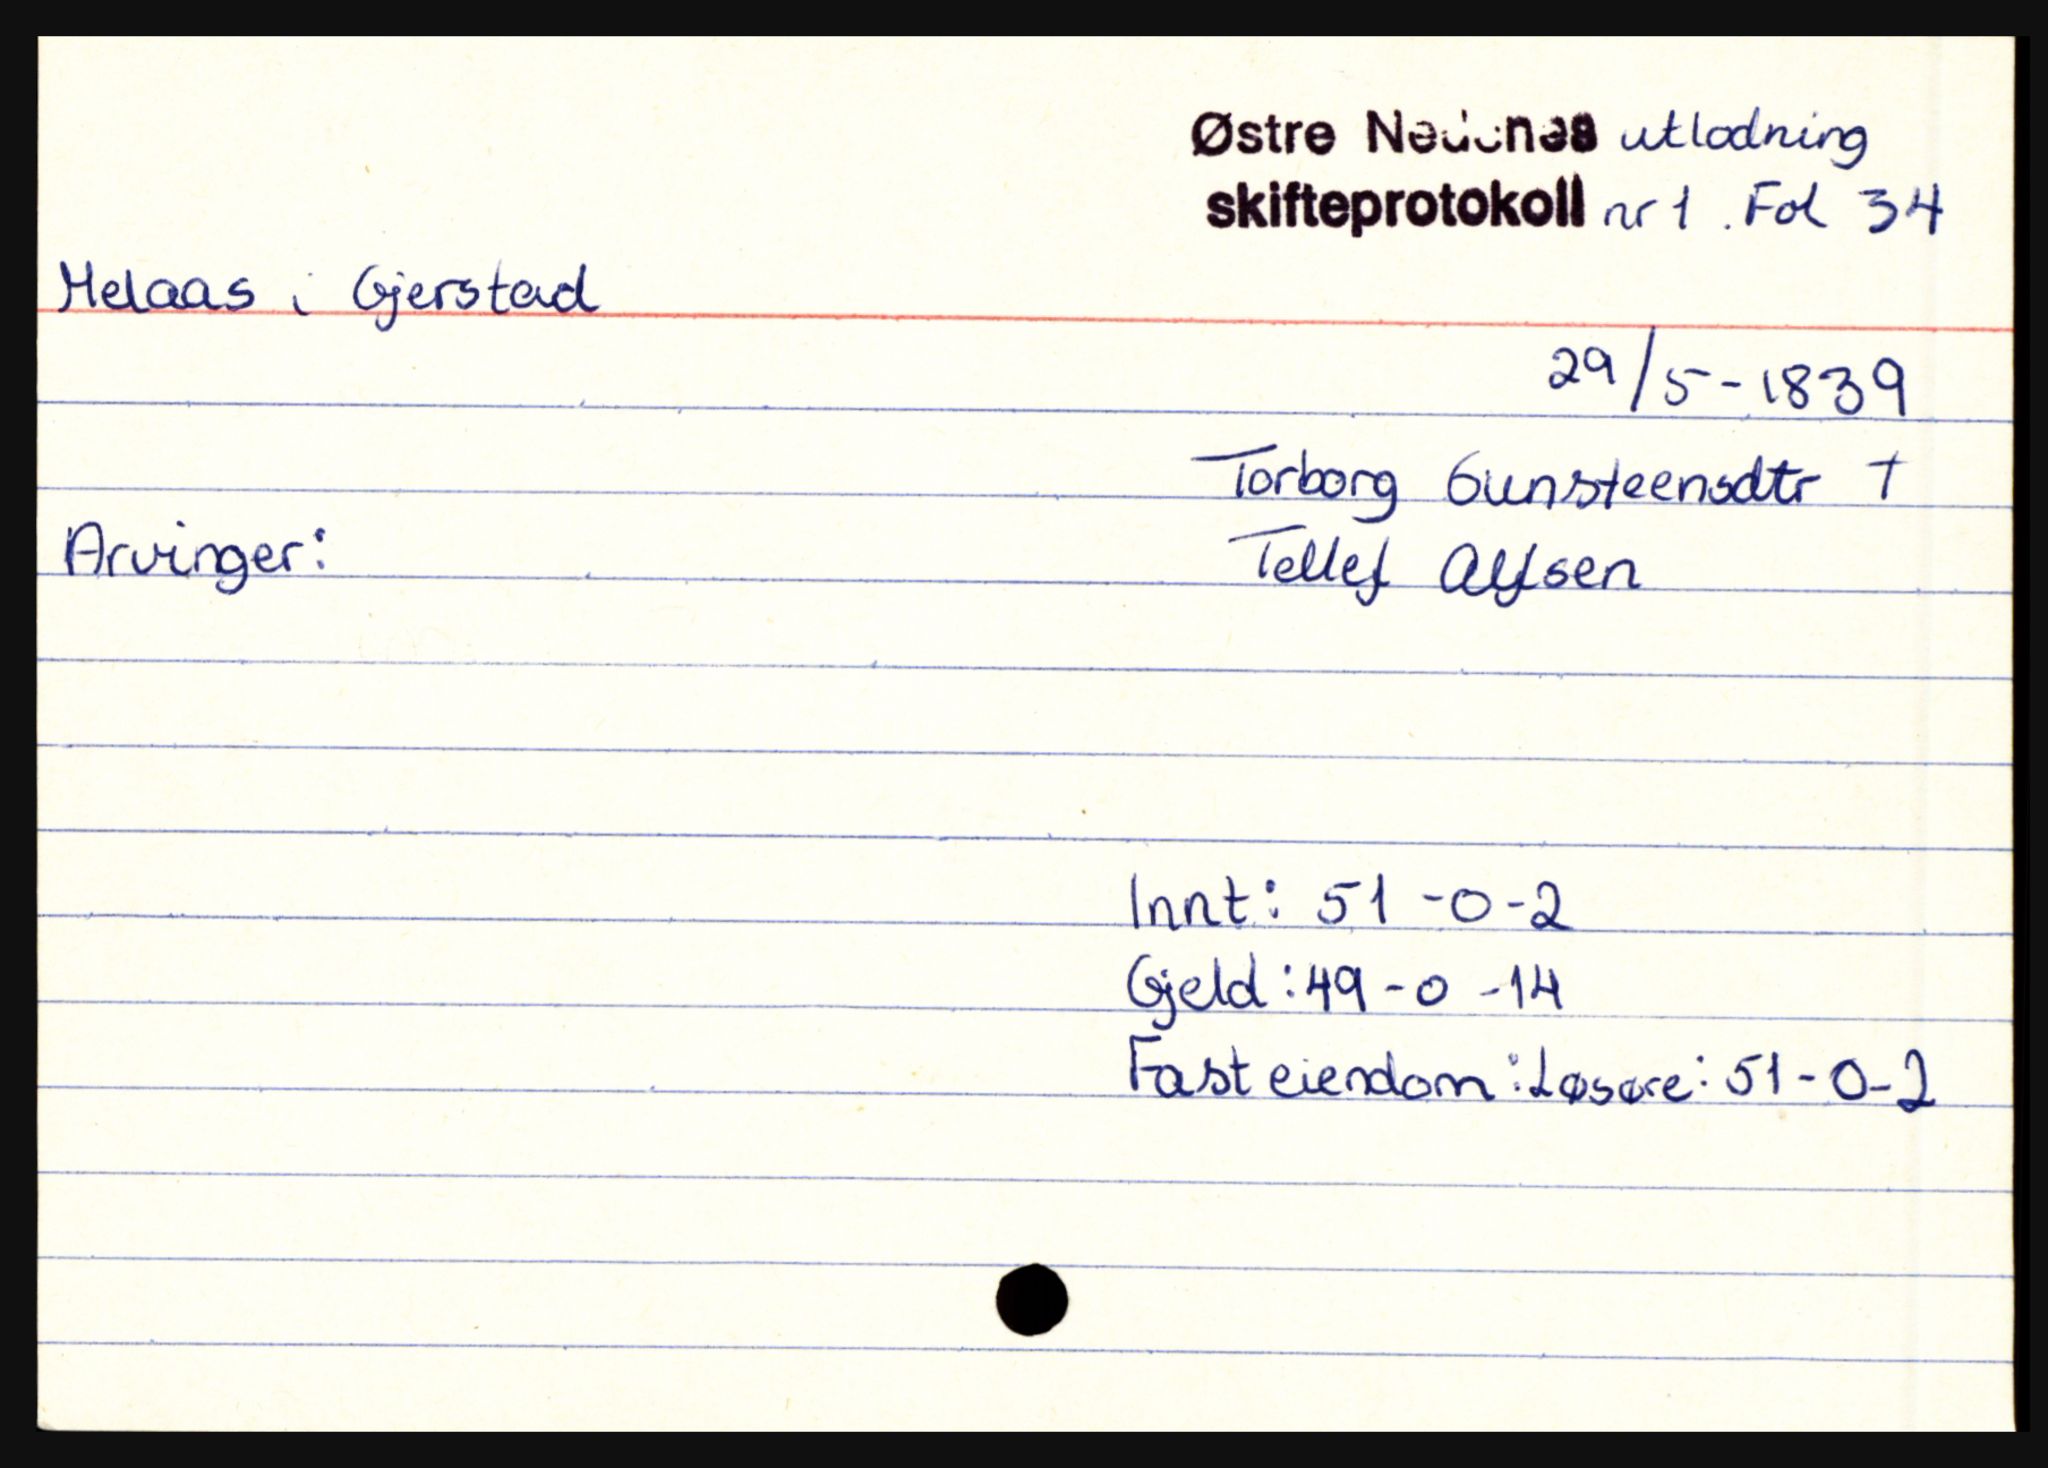 Østre Nedenes utlodning
skifteprotokoll nr 1. Fol 34
Melaas i Gjerstad
29/5-1839
Torborg Gunsteensdtr †
Arvinger:
Tellef Alfsen
Innt: 51-0-2
Gjeld: 49-0-14
Fast eiendom: Løsøre: 51-0-2